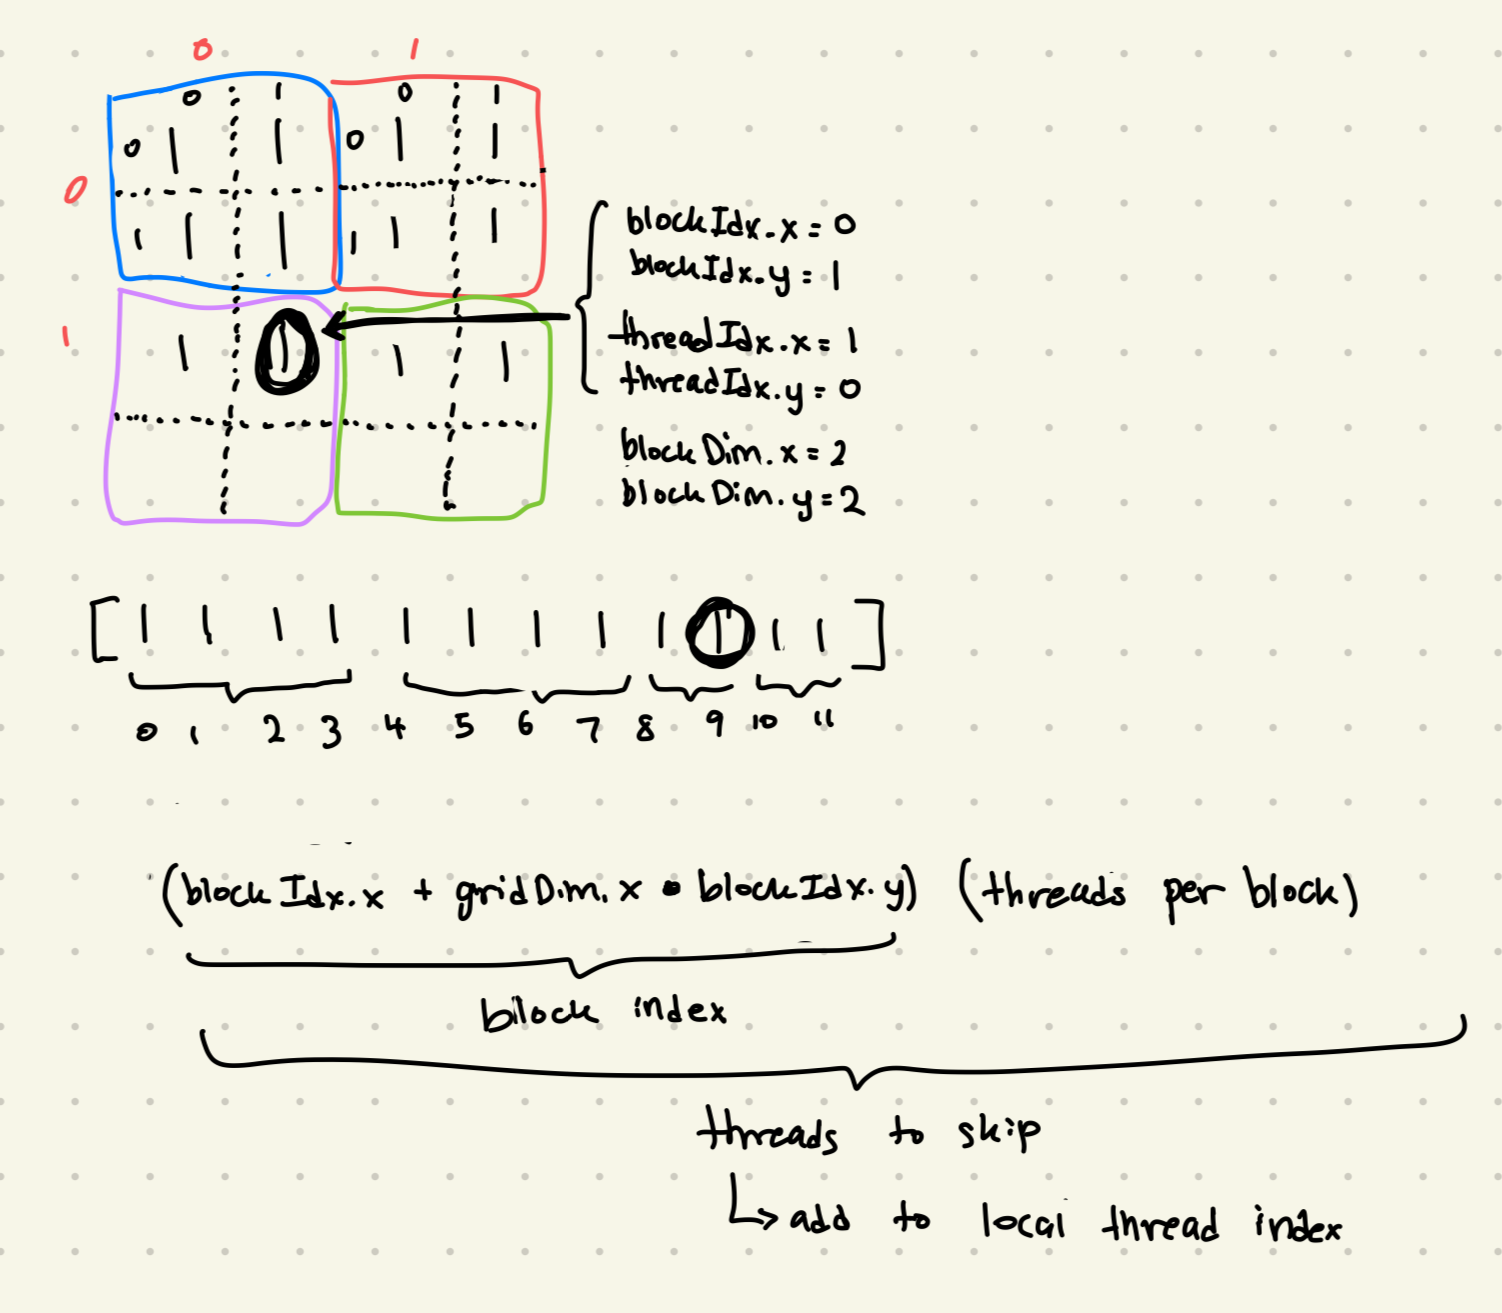 0 1
0 1 0 1
0 1 1 0 1 1
0
1 1 1 1 1 1
blockIdx.x = 0
blockIdx.y = 1
1
1 1 1 1
threadIdx.x = 1
threadIdx.y = 0
blockDim.x = 2
blockDim.y = 2
[ 1 1 1 1 1 1 1 1 1 1 1 1 ]
0 1 2 3 4 5 6 7 8 9 10 11
(blockIdx.x + gridDim.x • blockIdx.y) (threads per block)
block index
threads to skip
↳ add to local thread index